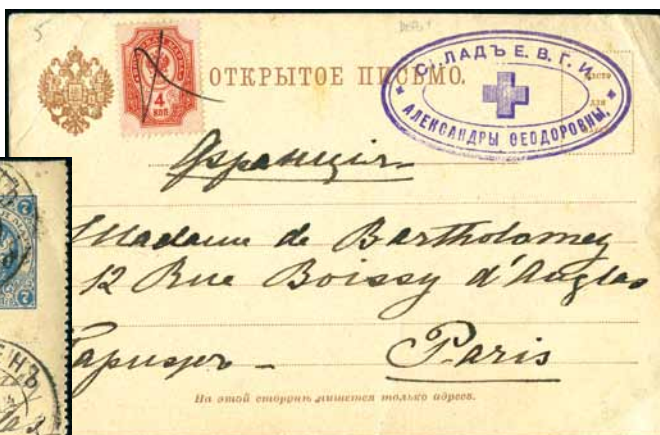 5
ОТКРЫТОЕ ПИСЬМО.
4
КОП
СКЛАДЪ Е. В. Г. И.
АЛЕКСАНДРЫ ѲЕОДОРОВНЫ,
Мѣсто
для
Франція
Madame de Bartholomey
12 Rue Boissy d'Anglas
Парижъ – Paris
На этой сторонѣ пишется только адресъ.
2
2
ЕНЪ